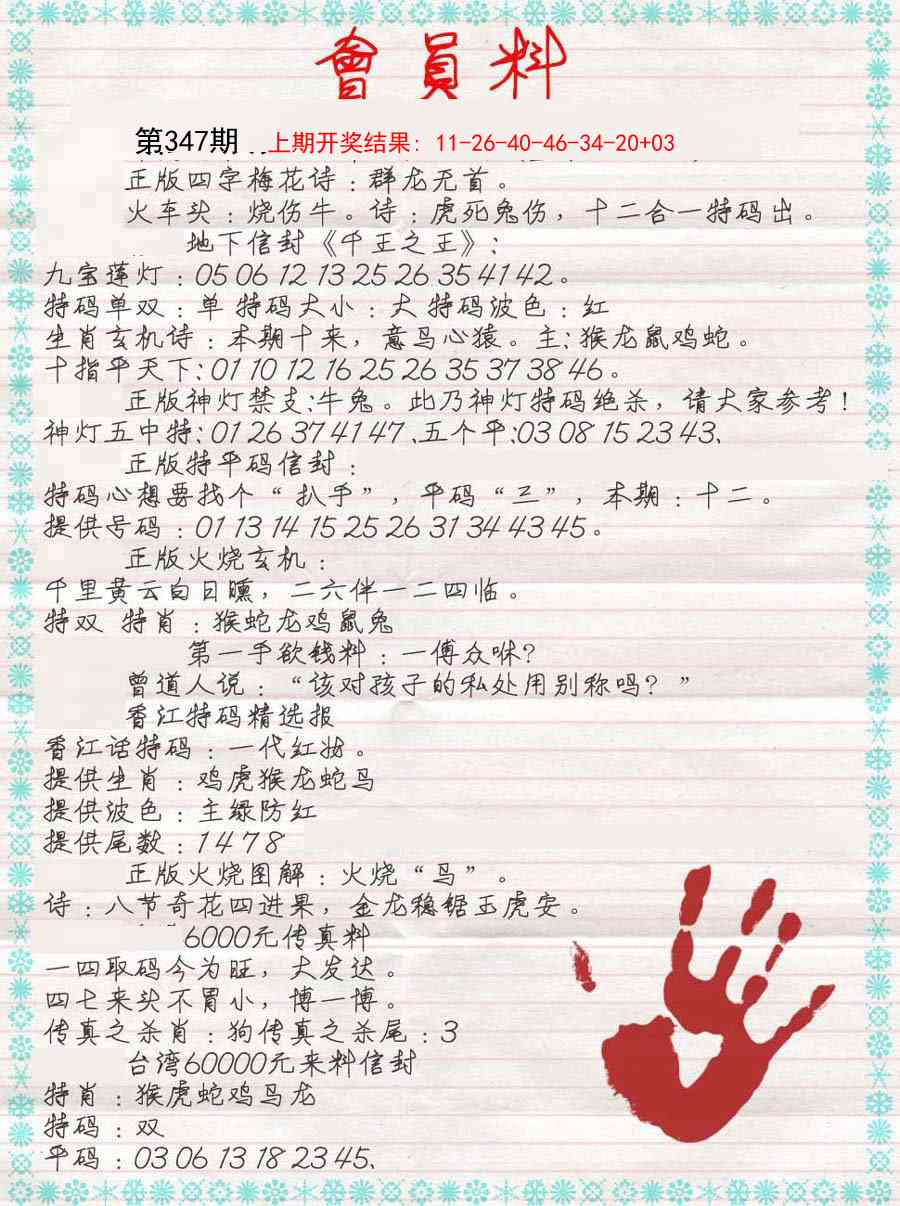 會員料
第347期 上期开奖结果: 11-26-40-46-34-20+03
正版四字梅花诗：群龙无首。
火车头：烧伤牛。诗：虎死兔伤，十二合一特码出。
地下信封《千王之王》：
九宝莲灯：05 06 12 13 25 26 35 41 42。
特码单双：单 特码大小：大 特码波色：红
生肖玄机诗：本期十来，意马心猿。主：猴龙鼠鸡蛇。
十指平天下：01 10 12 16 25 26 35 37 38 46。
正版神灯禁支：牛兔。此乃神灯特码绝杀，请大家参考！
神灯五中特：01 26 37 41 47、五个平：03 08 15 23 43、
正版特平码信封：
特码心想要找个“扒手”，平码“三”，本期：十二。
提供号码：01 13 14 15 25 26 31 34 43 45。
正版火烧玄机：
千里黄云白日曛，二六伴一二四临。
特双 特肖：猴蛇龙鸡鼠兔
第一手欲钱料：一傅众咻？
曾道人说：“该对孩子的私处用别称吗？”
香江特码精选报
香江话特码：一代红妆。
提供生肖：鸡虎猴龙蛇马
提供波色：主绿防红
提供尾数：1 4 7 8
正版火烧图解：火烧“鸟”。
诗：八节奇花四进果，金龙稳锯玉虎安。
6000元传真料
一四取码今为旺，大发达。
四七来头不胃小，博一博。
传真之杀肖：狗传真之杀尾：3
台湾60000元来料信封
特肖：猴虎蛇鸡马龙
特码：双
平码：03 06 13 18 23 45、